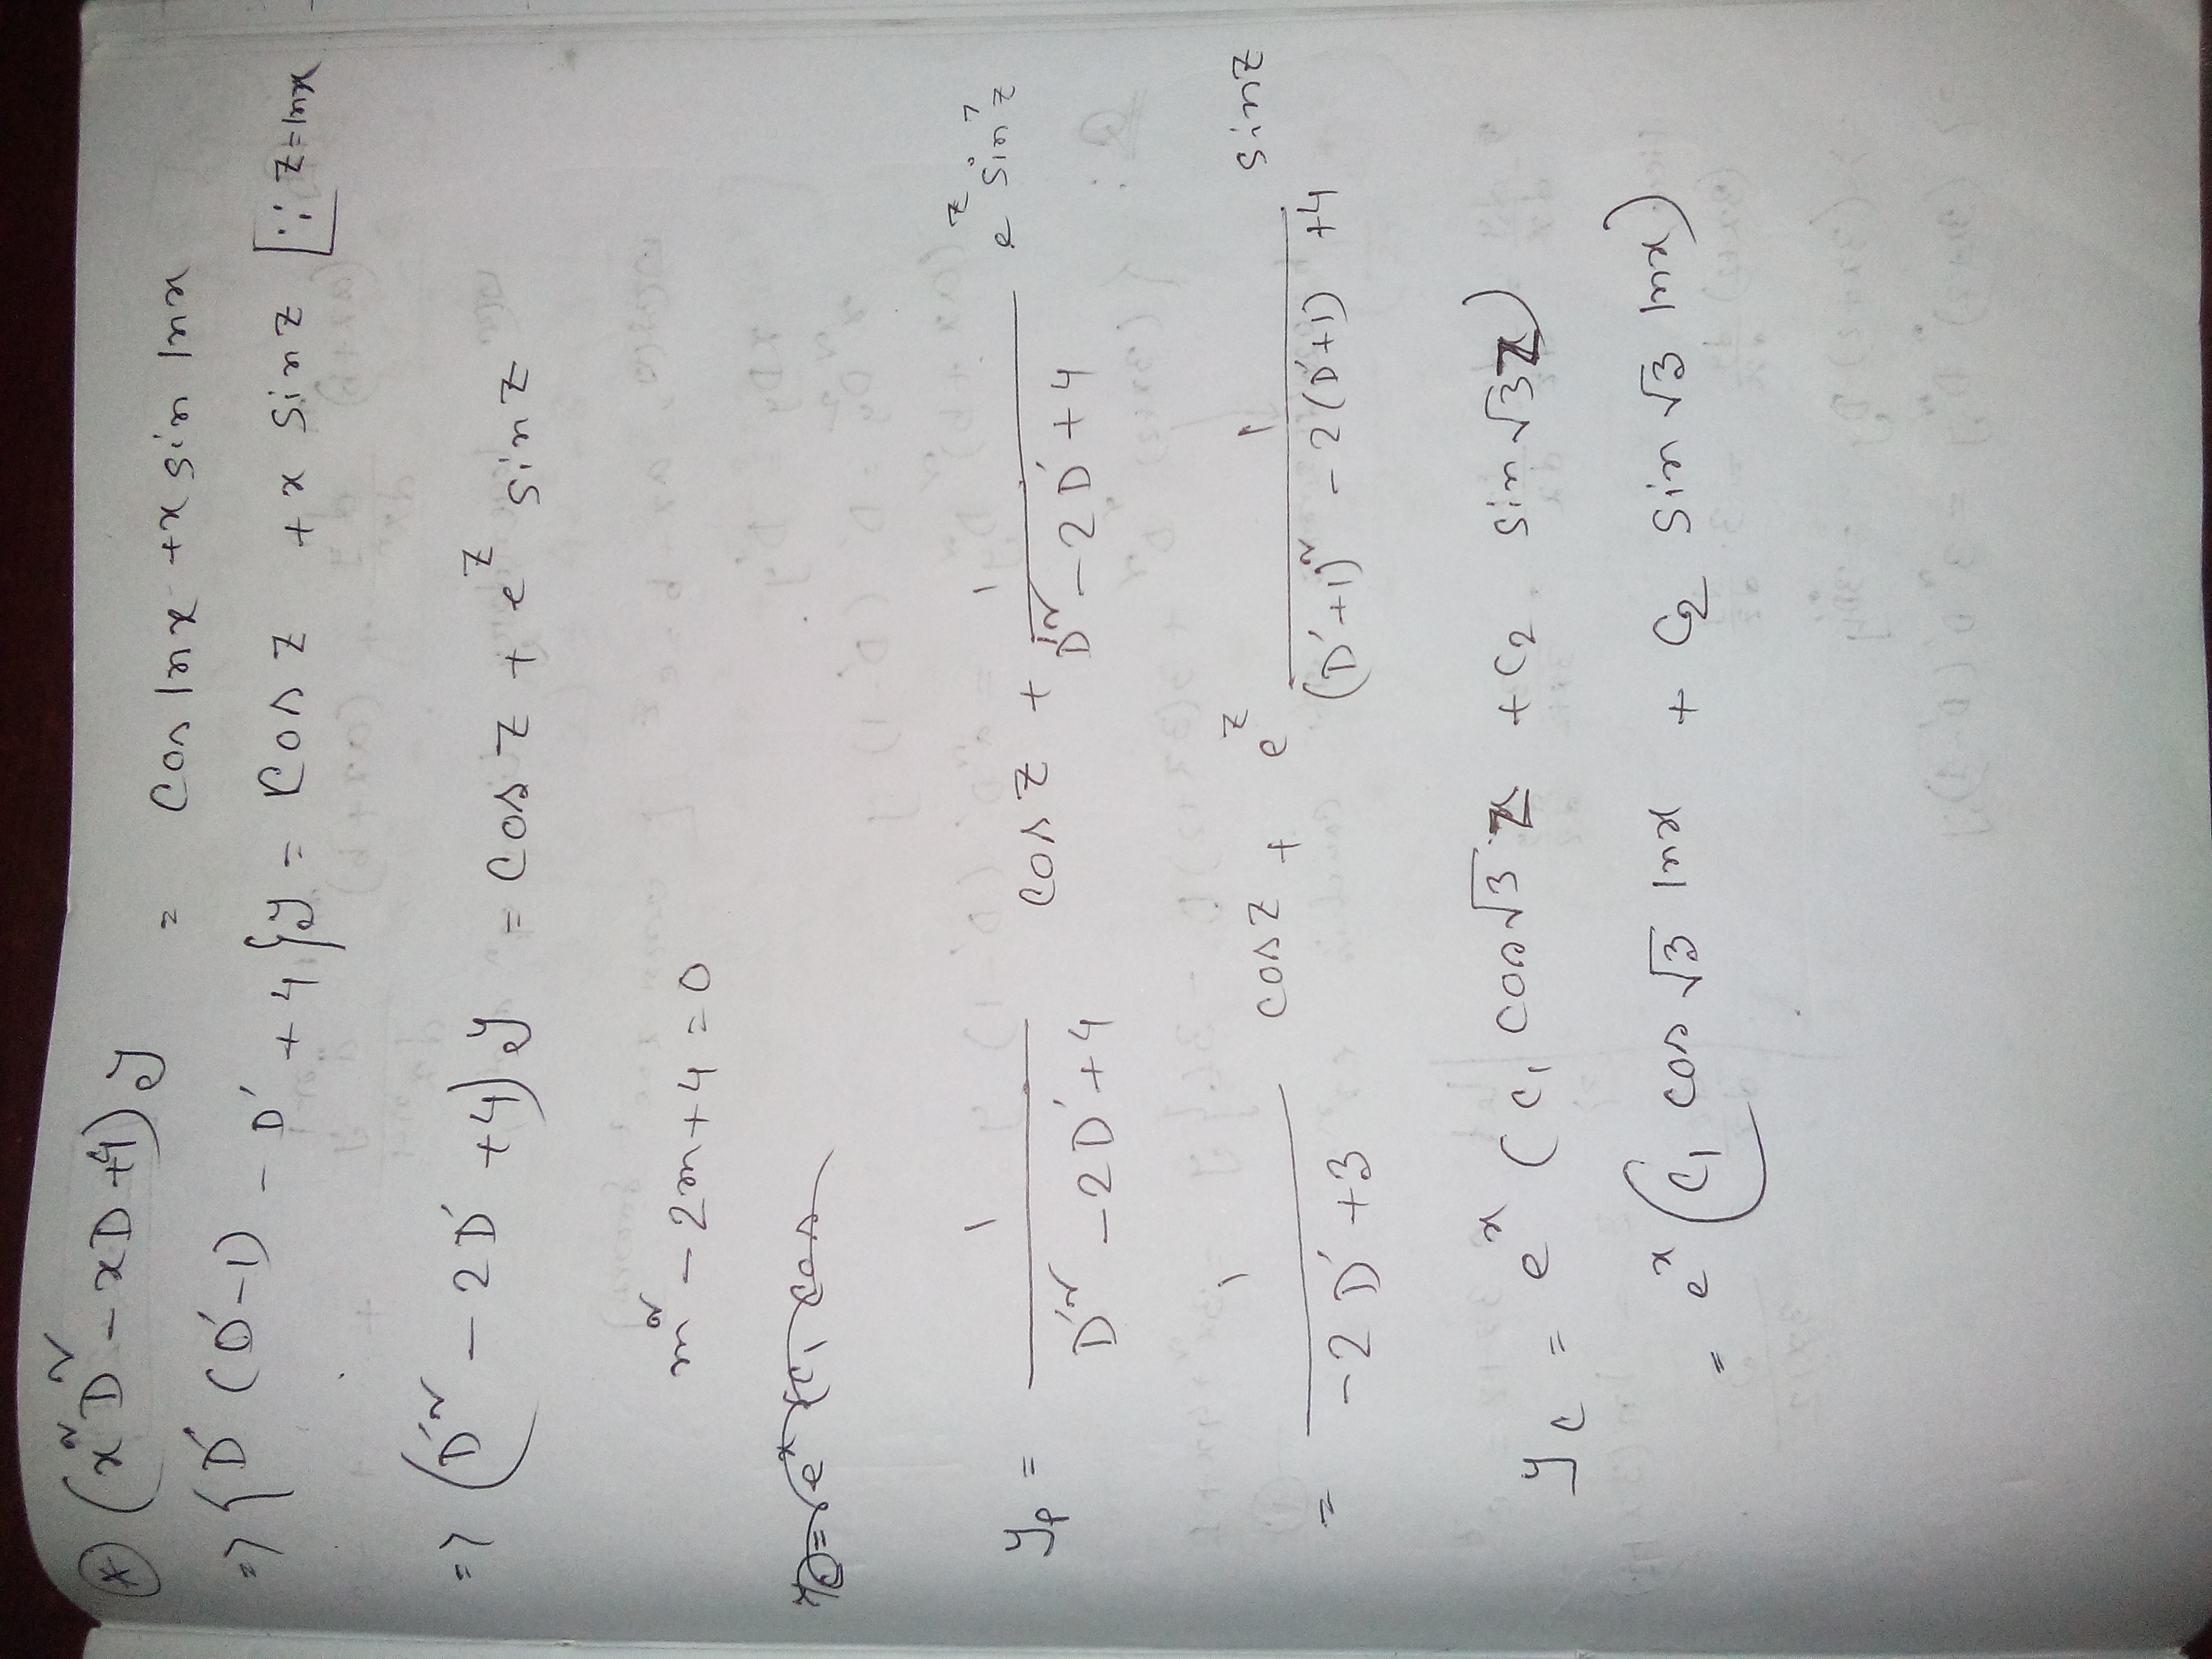 (*) (x² D² - xD + 4) y = cos ln x + x sin ln x
=> {D' (D'-1) - D' + 4} y = cos z + x sin z [∵ z = ln x
=> (D'² - 2D' + 4) y = cos z + e^z sin z
m² - 2m + 4 = 0
y_p = 1/(D'² - 2D' + 4) cos z + 1/(D'² - 2D' + 4) e^z sin z
= 1/(-2D' + 3) cos z + e^z 1/((D'+1)² - 2(D'+1) + 4) sin z
y_c = e^x (c₁ cos √3 z + c₂ sin √3 z)
= e^x (c₁ cos √3 ln x + c₂ sin √3 ln x)